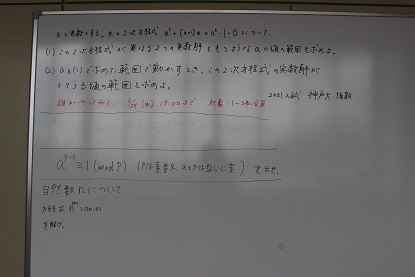 aを実数とする。xの2次方程式 x²+(a+1)x+a²-1=0 について
(1) この2次方程式が異なる2つの実数解をもつようなaの値の範囲を求めよ。
(2) aを(1)で求めた範囲で動かすとき、この2次方程式の実数解が
とりうる値の範囲を求めよ。
2021入試 神戸大・後期
17:00まで 対象:1〜3年全員
a^(p-1)≡1 (mod P) (Pは素数, aとPは互いに素) を示せ。
自然数nについて
方程式
を解け。